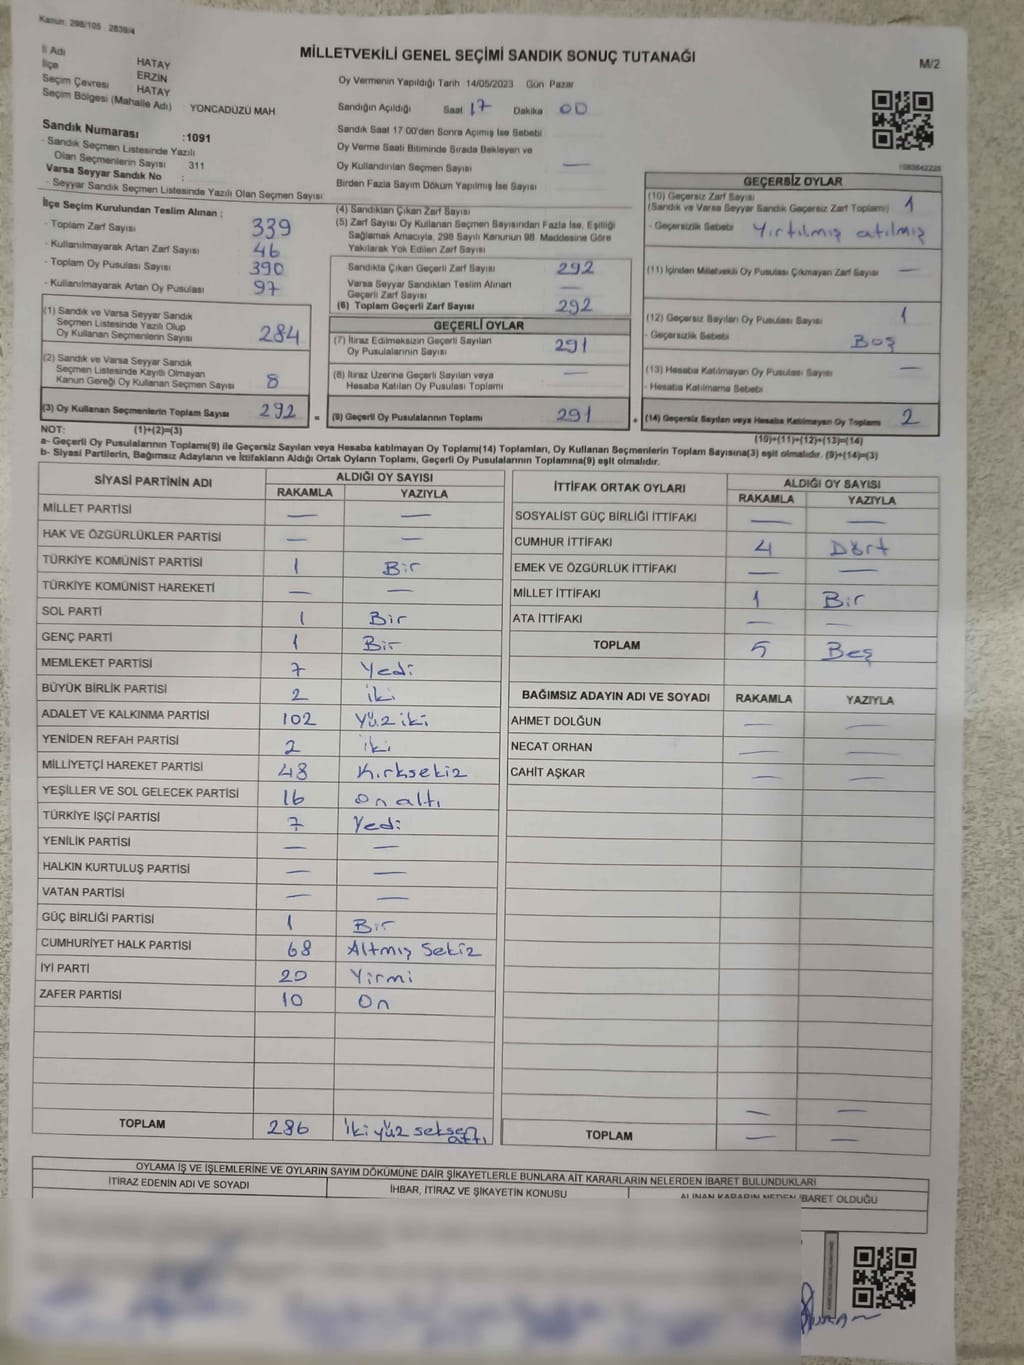 Kanun: 298/105 . 2839/4
MİLLETVEKİLİ GENEL SEÇİMİ SANDIK SONUÇ TUTANAĞI
M/2
İl Adı HATAY
İlçe ERZİN
Seçim Çevresi HATAY
Seçim Bölgesi (Mahalle Adı) : YONCADÜZÜ MAH
Sandık Numarası :1091
- Sandık Seçmen Listesinde Yazılı
Olan Seçmenlerin Sayısı 311
Varsa Seyyar Sandık No :
- Seyyar Sandık Seçmen Listesinde Yazılı Olan Seçmen Sayısı
Oy Vermenin Yapıldığı Tarih 14/05/2023 Gün Pazar
Sandığın Açıldığı Saat 17 Dakika 00
Sandık Saat 17:00'den Sonra Açımış İse Sebebi
Oy Verme Saati Bitiminde Sırada Bekleyen ve
Oy Kullandırılan Seçmen Sayısı —
Birden Fazla Sayım Döküm Yapılmış İse Sayısı
İlçe Seçim Kurulundan Teslim Alınan ;
- Toplam Zarf Sayısı 339
- Kullanılmayarak Artan Zarf Sayısı 46
- Toplam Oy Pusulası Sayısı 390
- Kullanılmayarak Artan Oy Pusulası 97
(1) Sandık ve Varsa Seyyar Sandık
Seçmen Listesinde Yazılı Olup
Oy Kullanan Seçmenlerin Sayısı 284
(2) Sandık ve Varsa Seyyar Sandık
Seçmen Listesinde Kayıtlı Olmayan
Kanun Gereği Oy Kullanan Seçmen Sayısı 8
(3) Oy Kullanan Seçmenlerin Toplam Sayısı 292
(4) Sandıktan Çıkan Zarf Sayısı
(5) Zarf Sayısı Oy Kullanan Seçmen Sayısından Fazla İse, Eşitliği
Sağlamak Amacıyla, 298 Sayılı Kanunun 98. Maddesine Göre
Yakılarak Yok Edilen Zarf Sayısı
Sandıkta Çıkan Geçerli Zarf Sayısı 292
Varsa Seyyar Sandıktan Teslim Alınan
Geçerli Zarf Sayısı —
(6) Toplam Geçerli Zarf Sayısı 292
GEÇERLİ OYLAR
(7) İtiraz Edilmeksizin Geçerli Sayılan
Oy Pusulalarının Sayısı 291
(8) İtiraz Üzerine Geçerli Sayılan veya
Hesaba Katılan Oy Pusulası Toplamı —
= (9) Geçerli Oy Pusulalarının Toplamı 291
GEÇERSİZ OYLAR
(10) Geçersiz Zarf Sayısı
(Sandık ve Varsa Seyyar Sandık Geçersiz Zarf Toplamı) 1
- Geçersizlik Sebebi Yırtılmış atılmış
(11) İçinden Milletvekili Oy Pusulası Çıkmayan Zarf Sayısı —
(12) Geçersiz Sayılan Oy Pusulası Sayısı 1
- Geçersizlik Sebebi Boş
(13) Hesaba Katılmayan Oy Pusulası Sayısı —
- Hesaba Katılmama Sebebi
+ (14) Geçersiz Sayılan veya Hesaba Katılmayan Oy Toplamı 2
NOT: (1)+(2)=(3)
(10)+(11)+(12)+(13)=(14)
a- Geçerli Oy Pusulalarının Toplamı(9) ile Geçersiz Sayılan veya Hesaba katılmayan Oy Toplamı(14) Toplamları, Oy Kullanan Seçmenlerin Toplam Sayısına(3) eşit olmalıdır. (9)+(14)=(3)
b- Siyasi Partilerin, Bağımsız Adayların ve İttifakların Aldığı Ortak Oyların Toplamı, Geçerli Oy Pusulalarının Toplamına(9) eşit olmalıdır.
SİYASİ PARTİNİN ADI ALDIĞI OY SAYISI
RAKAMLA YAZIYLA
MİLLET PARTİSİ — —
HAK VE ÖZGÜRLÜKLER PARTİSİ — —
TÜRKİYE KOMÜNİST PARTİSİ 1 Bir
TÜRKİYE KOMÜNİST HAREKETİ — —
SOL PARTİ 1 Bir
GENÇ PARTİ 1 Bir
MEMLEKET PARTİSİ 7 Yedi
BÜYÜK BİRLİK PARTİSİ 2 iki
ADALET VE KALKINMA PARTİSİ 102 Yüz iki
YENİDEN REFAH PARTİSİ 2 iki
MİLLİYETÇİ HAREKET PARTİSİ 48 Kırksekiz
YEŞİLLER VE SOL GELECEK PARTİSİ 16 on altı
TÜRKİYE İŞÇİ PARTİSİ 7 Yedi
YENİLİK PARTİSİ — —
HALKIN KURTULUŞ PARTİSİ — —
VATAN PARTİSİ — —
GÜÇ BİRLİĞİ PARTİSİ 1 Bir
CUMHURİYET HALK PARTİSİ 68 Altmış Sekiz
İYİ PARTİ 20 Yirmi
ZAFER PARTİSİ 10 On
TOPLAM 286 iki yüz seksen altı
İTTİFAK ORTAK OYLARI ALDIĞI OY SAYISI
RAKAMLA YAZIYLA
SOSYALİST GÜÇ BİRLİĞİ İTTİFAKI — —
CUMHUR İTTİFAKI 4 Dört
EMEK VE ÖZGÜRLÜK İTTİFAKI — —
MİLLET İTTİFAKI 1 Bir
ATA İTTİFAKI — —
TOPLAM 5 Beş
BAĞIMSIZ ADAYIN ADI VE SOYADI RAKAMLA YAZIYLA
AHMET DOLĞUN — —
NECAT ORHAN — —
CAHİT AŞKAR — —
— —
TOPLAM — —
OYLAMA İŞ VE İŞLEMLERİNE VE OYLARIN SAYIM DÖKÜMÜNE DAİR ŞİKAYETLERLE BUNLARA AİT KARARLARIN NELERDEN İBARET BULUNDUKLARI
İTİRAZ EDENİN ADI VE SOYADI İHBAR, İTİRAZ VE ŞİKAYETİN KONUSU ALINAN KARARIN NEDEN İBARET OLDUĞU